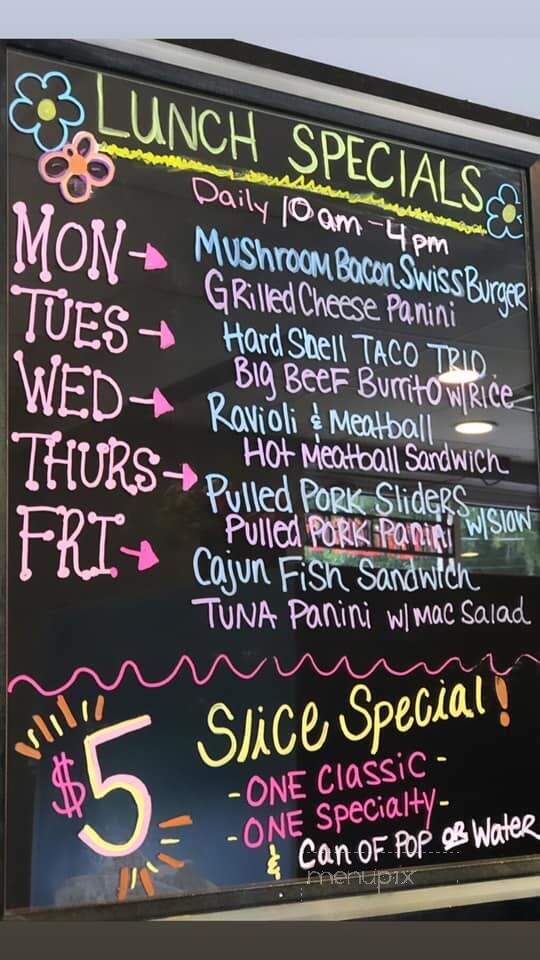 LUNCH SPECIALS
Daily 10am-4pm
MON → Mushroom Bacon Swiss Burger
Grilled Cheese Panini
TUES → Hard Shell TACO TRIO
Big Beef Burrito w/Rice
WED → Ravioli & Meatball
Hot Meatball Sandwich
THURS → Pulled Pork Sliders w/Slaw
Pulled Pork Panini
FRI → Cajun Fish Sandwich
TUNA Panini w/ Mac Salad
$5 Slice Special!
- ONE Classic -
- ONE Specialty -
& Can OF POP OR Water
menupix